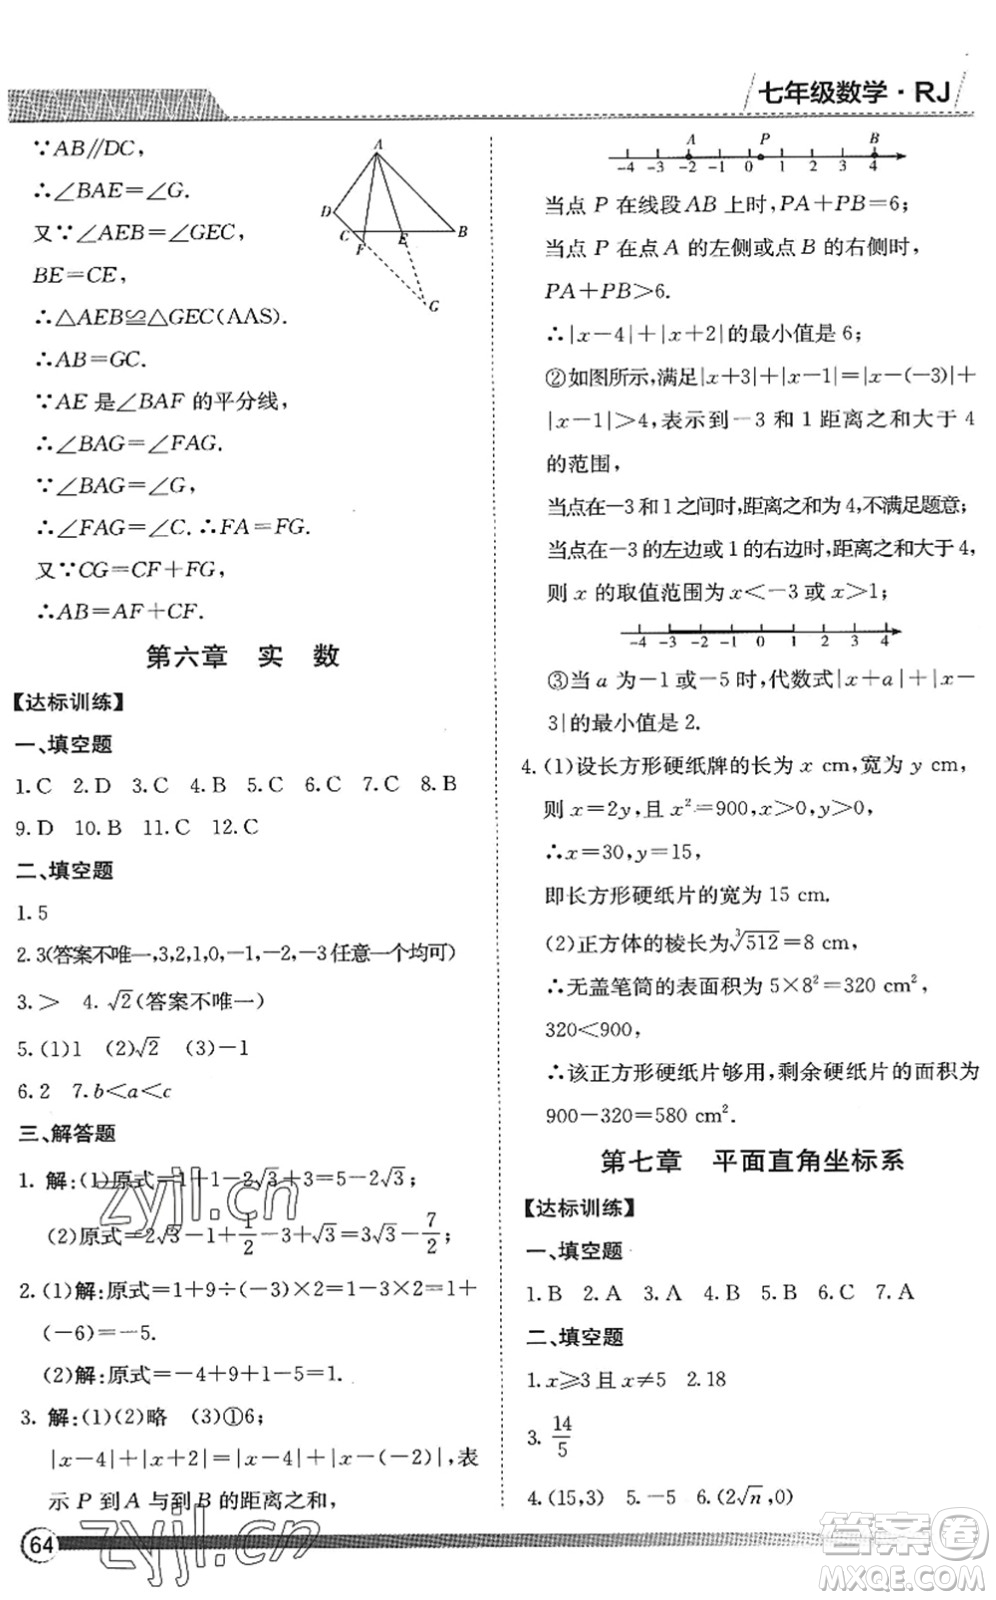 七年级数学·RJ
∵AB∥DC,
∴∠BAE=∠G.
又∵∠AEB=∠GEC,
BE=CE,
∴△AEB≌△GEC(AAS).
∴AB=GC.
∵AE 是∠BAF 的平分线,
∴∠BAG=∠FAG.
∵∠BAG=∠G,
∴∠FAG=∠C.∴FA=FG.
又∵CG=CF+FG,
∴AB=AF+CF.
A
D
C
F
E
B
G
第六章 实 数
【达标训练】
一、填空题
1.C 2.D 3.B 4.B 5.C 6.C 7.C 8.B
9.D 10.B 11.C 12.C
二、填空题
1.5
2.3(答案不唯一,3,2,1,0,-1,-2,-3任意一个均可)
3.> 4.√2(答案不唯一)
5.(1)1 (2)√2 (3)-1
6.2 7.b<a<c
三、解答题
1.解:(1)原式=1+1-2√3+3=5-2√3;
(2)原式=2√3-1+1/2-3+√3=3√3-7/2;
2.(1)解:原式=1+9÷(-3)×2=1-3×2=1+
(-6)=-5.
(2)解:原式=-4+9+1-5=1.
3.解:(1)(2)略 (3)①6;
|x-4|+|x+2|=|x-4|+|x-(-2)|,表
示 P 到A 与到 B 的距离之和,
A P B
-4 -3 -2 -1 0 1 2 3 4
当点 P 在线段 AB 上时,PA+PB=6;
当点 P 在点 A 的左侧或点 B 的右侧时,
PA+PB>6.
∴|x-4|+|x+2|的最小值是 6;
②如图所示,满足|x+3|+|x-1|=|x-(-3)|+
|x-1|>4,表示到-3 和 1 距离之和大于 4
的范围,
当点在-3和1之间时,距离之和为4,不满足题意;
当点在-3的左边或1的右边时,距离之和大于4,
则 x 的取值范围为 x<-3 或 x>1;
-4 -3 -2 -1 0 1 2 3 4
③当 a 为-1 或-5 时,代数式|x+a|+|x-
3|的最小值是 2.
4.(1)设长方形硬纸牌的长为 x cm,宽为 y cm,
则 x=2y,且 x²=900,x>0,y>0,
∴x=30,y=15,
即长方形硬纸片的宽为 15 cm.
(2)正方体的棱长为∛512=8 cm,
∴无盖笔筒的表面积为 5×8²=320 cm²,
320<900,
∴该正方形硬纸片够用,剩余硬纸片的面积为
900-320=580 cm².
第七章 平面直角坐标系
【达标训练】
一、填空题
1.B 2.A 3.A 4.B 5.B 6.C 7.A
二、填空题
1.x≥3且 x≠5 2.18
3. 14/5
4.(15,3) 5.-5 6.(2√n,0)
64
zyjl.cn
zyjl.cn
答案卷
MXQE.COM